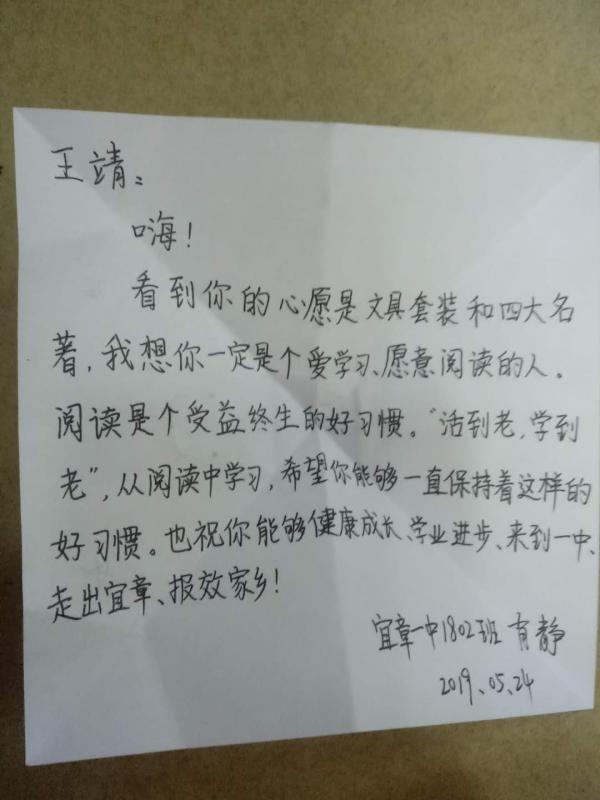 王靖：
嗨！
看到你的心愿是文具套装和四大名
著，我想你一定是个爱学习、愿意阅读的人。
阅读是个受益终生的好习惯。“活到老，学到
老”，从阅读中学习，希望你能够一直保持着这样的
好习惯。也祝你能够健康成长、学业进步、来到一中、
走出宜章、报效家乡！
宜章一中1802班 肖静
2019.05.24